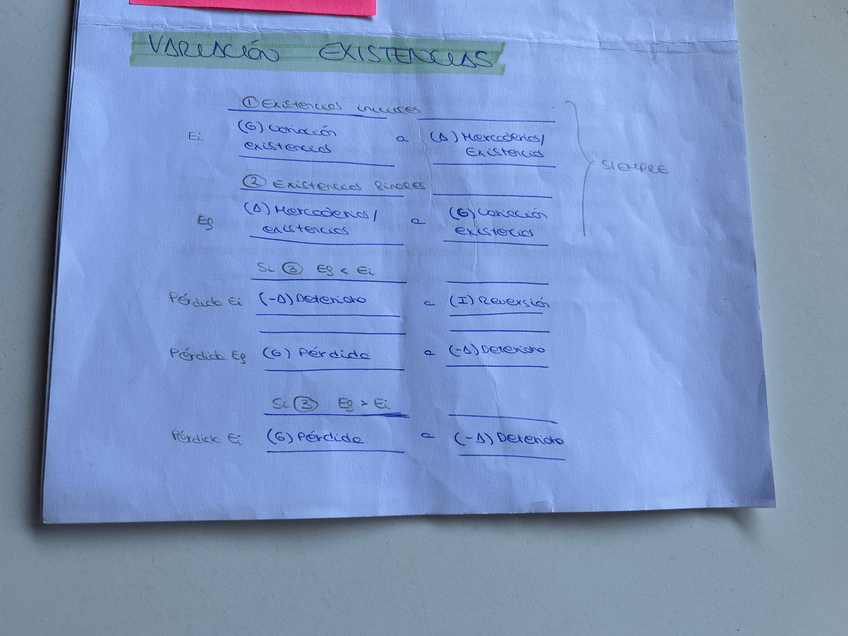 VARIACIÓN EXISTENCIAS
① Existencias iniciales
Ei (G) Variación existencias a (A) Mercaderías/ Existencias
SIEMPRE
② Existencias finales
Ef (A) Mercaderías/ existencias a (G) Variación existencias
Si ③ Ef < Ei
Pérdida Ei (-A) Deterioro a (I) Reversión
Pérdida Ef (G) Pérdida a (-A) Deterioro
Si ③ Ef > Ei
Pérdida Ei (G) Pérdida a (-A) Deterioro